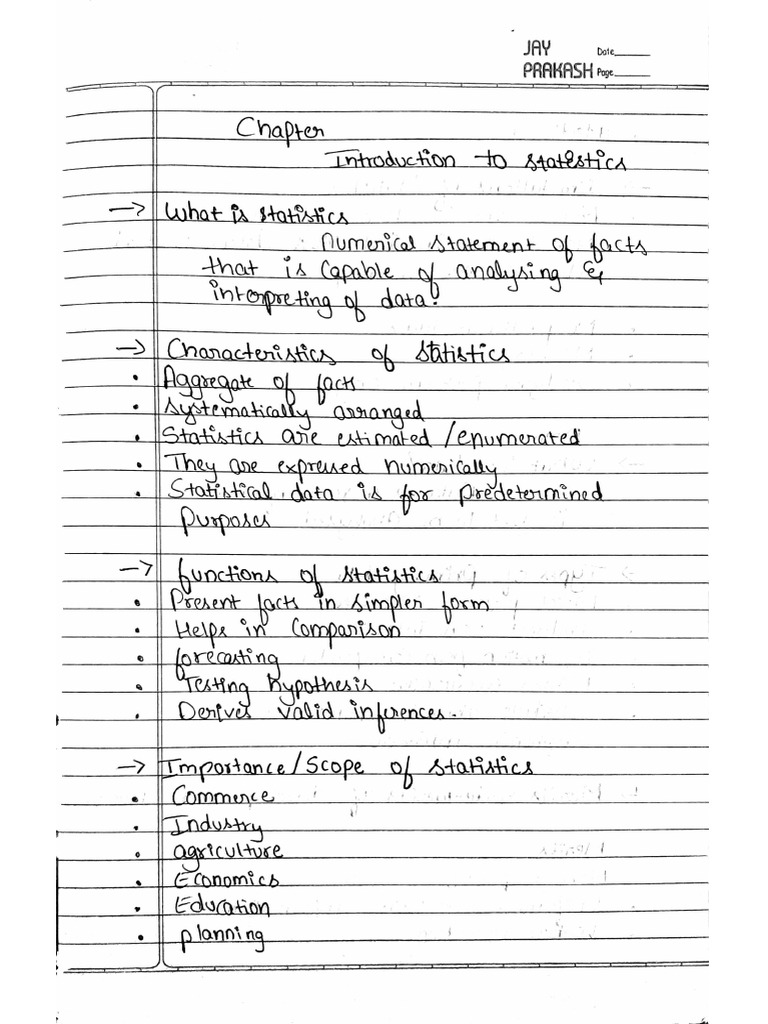 JAY Date______
PRAKASH Page______
Chapter
Introduction to statistics
→ What is statistics
Numerical statement of facts
that is capable of analysing &
interpreting of data.
→ Characteristics of statistics
• Aggregate of facts
• systematically arranged
• Statistics are estimated/enumerated
• They are expressed numerically
• Statistical data is for predetermined
purposes
→ functions of statistics
• Present facts in simpler form
• Helps in comparison
• forecasting
• Testing hypothesis
• Derives valid inferences.
→ Importance/Scope of statistics
• Commerce
• Industry
• agriculture
• Economics
• Education
• planning